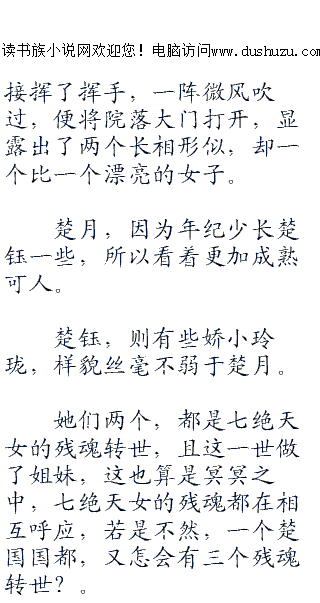 读书族小说网欢迎您！电脑访问www.dushuzu.com
接挥了挥手，一阵微风吹
过，便将院落大门打开，显
露出了两个长相形似，却一
个比一个漂亮的女子。
楚月，因为年纪少长楚
钰一些，所以看着更加成熟
可人。
楚钰，则有些娇小玲
珑，样貌丝毫不弱于楚月。
她们两个，都是七绝天
女的残魂转世，且这一世做
了姐妹，这也算是冥冥之
中，七绝天女的残魂都在相
互呼应，若是不然，一个楚
国国都，又怎会有三个残魂
转世？。